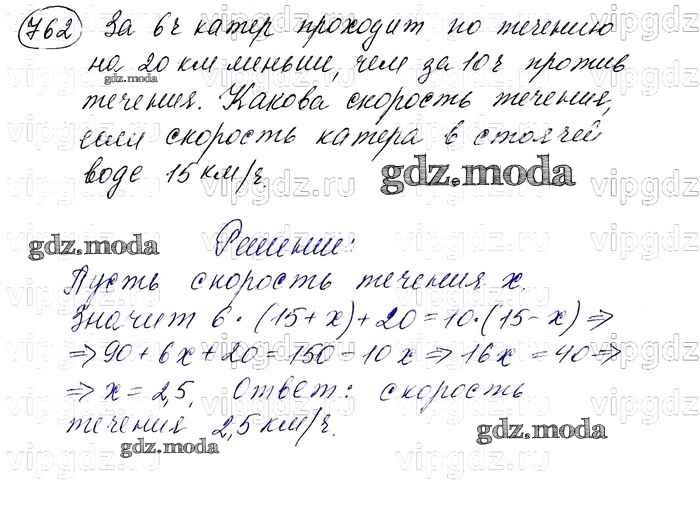 762 За 6ч катер проходит по течению
на 20 км меньше, чем за 10ч против
gdz.moda
течения. Какова скорость течения,
если скорость катера в стоячей
воде 15 км/ч.
gdz.moda
gdz.moda
Решение:
Пусть скорость течения x.
Значит 6·(15+x)+20=10·(15-x)⇒
⇒90+6x+20=150-10x⇒16x=40⇒
⇒x=2,5. Ответ: скорость
течения 2,5 км/ч.
gdz.moda
gdz.moda
vipgdz.ru